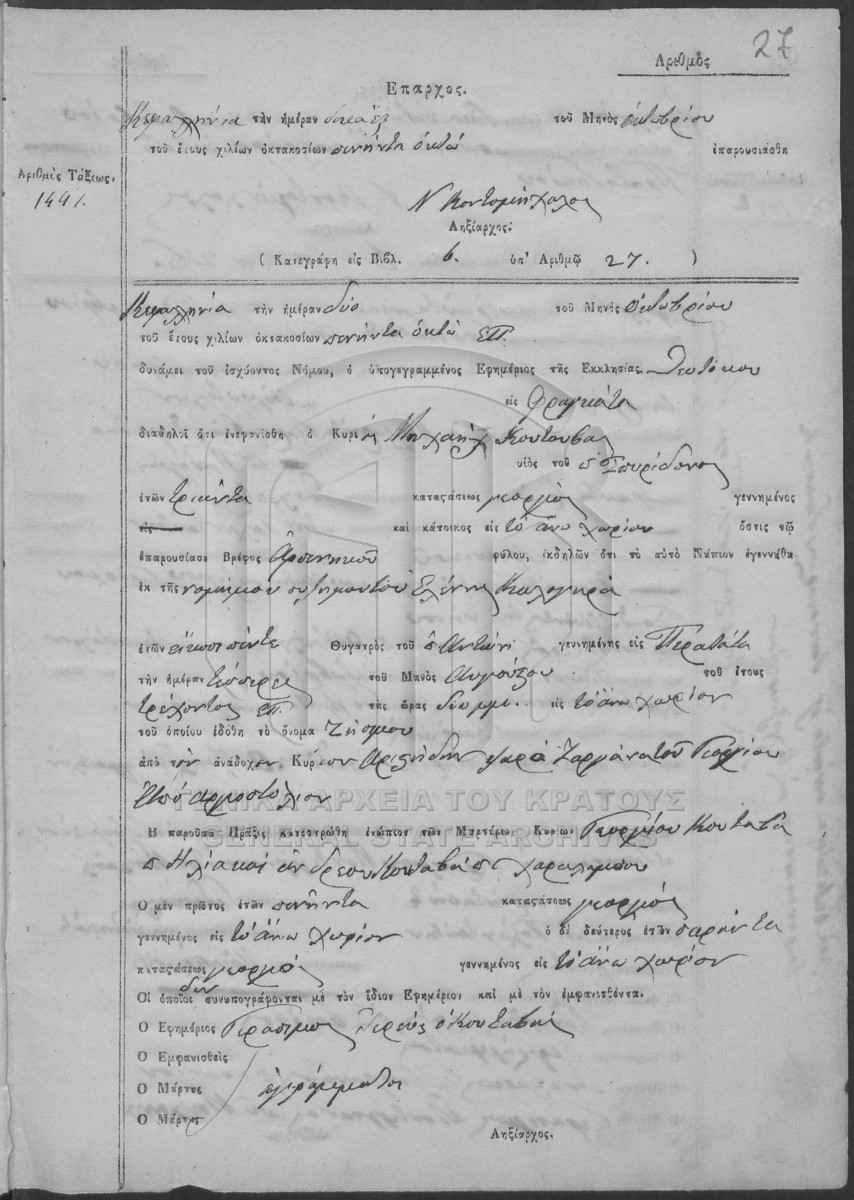 27
Αριθμὸς
Επαρχος.
Κεφαλληνία τὴν ἡμέραν δεκαέξ τοῦ Μηνὸς Οκτωβρίου
τοῦ ἔτους χιλίων ὀκτακοσίων πενήντα ὀκτώ ἐπαρουσιάσθη
Αριθμὸς Τάξεως.
1441.
Ν Κοντομίχαλος
Ληξίαρχος.
( Κατεγράφη εἰς Βιβλ. 6. ὑπ' Αριθμῷ 27. )
Κεφαλληνία τὴν ἡμέραν δύο τοῦ Μηνὸς Οκτωβρίου
τοῦ ἔτους χιλίων ὀκτακοσίων πενήντα ὀκτώ ΕΠ.
δυνάμει τοῦ ἰσχύοντος Νόμου, ὁ ὑπογεγραμμένος Εφημέριος τῆς Εκκλησίας Θεοτόκου
εἰς Φραγκάτα
διαδηλοῖ ὅτι ἐνεφανίσθη ὁ Κυριός Μιχαήλ Κουταβάς
υἱὸς τοῦ π Σπυρίδονος
ἐτῶν τριάντα καταςάσεως γεοργός γεννημένος
εἰς καὶ κάτοικος εἰς τό άνω χωρίον ὅστις τῷ
ἐπαρουσίασε Βρέφος Αρσενικού φύλου, ἐκδηλῶν ὅτι τὸ αὐτὸ Νήπιον ἐγεννήθη
ἐκ τῆς νομίμου συζύγου του Ελένης Καλογηρά
ἐτῶν είκοσι πέντε Θυγατρὸς τοῦ π Αντώνη γεννημένης εἰς Περατάτα
τὴν ἡμέραν τέσσερες τοῦ Μηνὸς Αυγούςου τοῦ ἔτους
τρέχοντος ΕΠ. τὰς ὥρας δύο μμ. εἰς το άνω χωρίον
τοῦ ὁποίου ἐδόθη τὸ ὄνομα Ζήσιμου
ἀπὸ τὸν ἀνάδοχον Κύριον Αριςείδην του Γεοργίου
από αργοστόλιον
ΓΕΝΙΚΑ ΑΡΧΕΙΑ ΤΟΥ ΚΡΑΤΟΥΣ
GENERAL STATE ARCHIVES
Η παροῦσα Πρᾶξις κατεστρώθη ἐνώπιον τῶν Μαρτύρων Κυρίων Γεοργίου Κουταβά
π Ηλία και ανδρέου Κουταβά π χαραλάμπου
Ο μὲν πρῶτος ἐτῶν πενήντα καταςάσεως γεοργός
γεννημένος εἰς το άνω χωρίον ὁ δὲ δεύτερος ἐτῶν σαράντα
καταςάσεως γεοργός γεννημένος εἰς το άνω χωρίον
Οἱ ὁποῖοι δεν συνυπογράφονται μὲ τὸν ἴδιον Εφημέριον καὶ μὲ τὸν ἐμφανισθέντα.
Ο Εφημέριος Γεράσιμος Ιερεύς ο Κουταβάς
Ο Εμφανισθεὶς
Ο Μάρτυς αγράμματοι
Ο Μάρτυς
Ληξίαρχος.